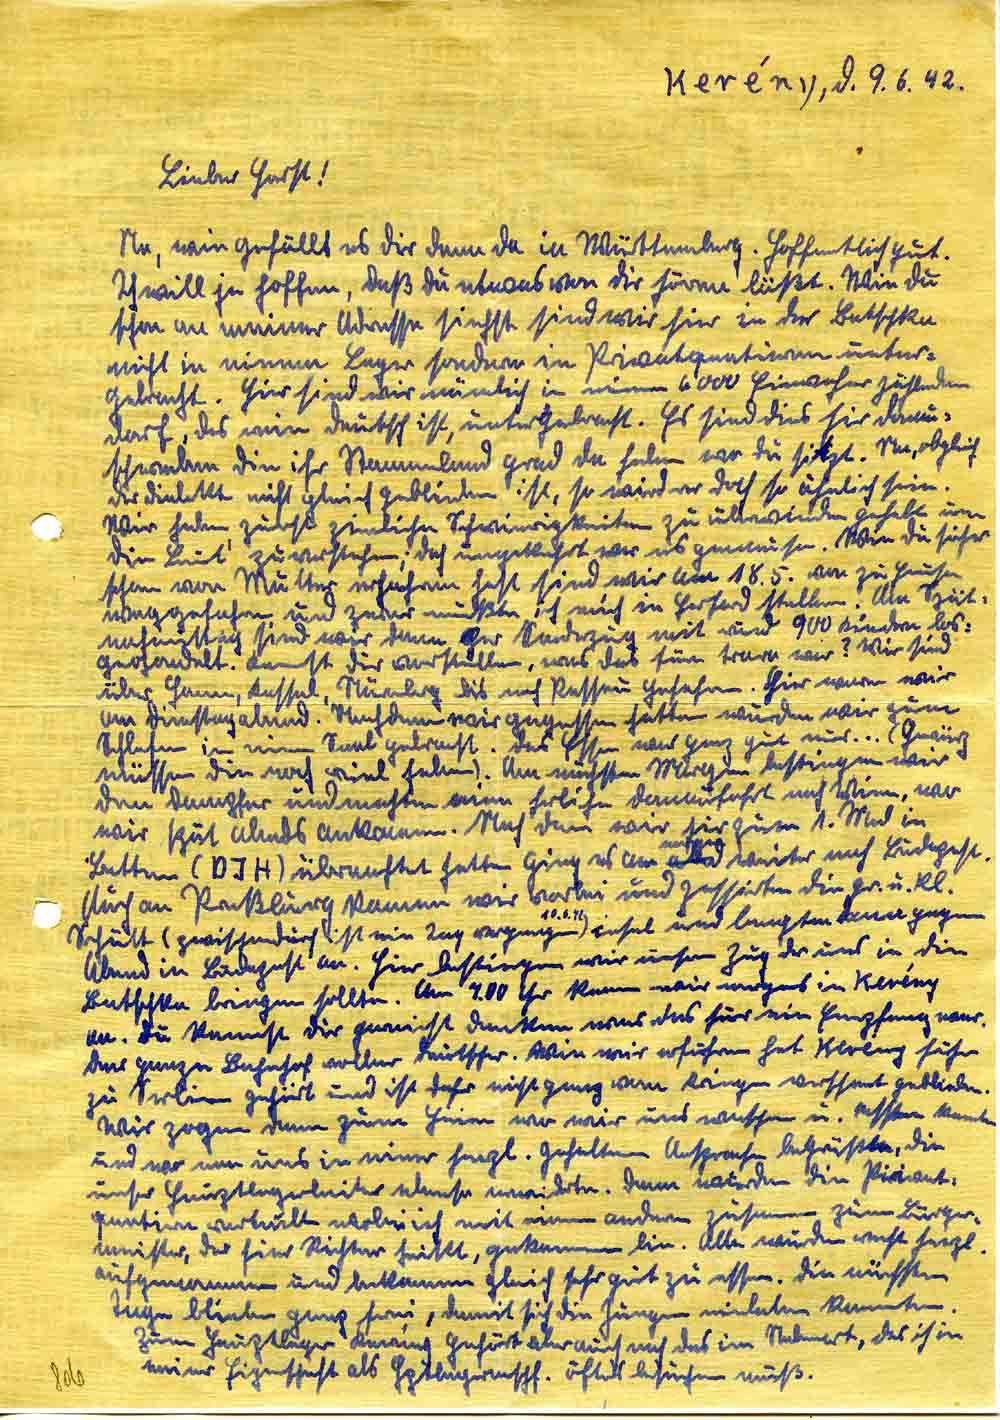 Kerény, d. 9.6.42.
Lieber Horst!
Na, wie gefällt es dir denn da in Württemberg. Hoffentlich gut.
Ich will ja hoffen, daß du etwas von dir hören läßt. Wie du
schon an meiner Adresse siehst sind wir hier in der Batschka
nicht in einem Lager sondern in Privatquatieren unter=
gebracht. Hier sind wir nämlich in einem 6000 Einwohner zählenden
Dorf, das rein deutsch ist, untergebracht. Es sind dies hir Donau=
schwaben die ihr Stammland grad da haben wo du sitzt. Na, obgleich
der Dialekt nicht gleich geblieben ist, so wird er doch so ähnlich sein.
Wir haben zuerst ziemliche Schwierigkeiten zu überwinden gehabt um
die Leut' zu verstehen; doch umgekehrt war es genauso. Wie du sicher
schon von Mutter erfahren hast sind wir am 18.5. von zu Hause
weggefahren und zwar mußte ich mich in Herford stellen. Am Spät=
nachmittag sind wir dann per Sonderzug mit rund 900 Kindern los=
gegondelt. Kannst dir vorstellen, was das für'n trara war? Wir sind
über Hamm, Kassel, Nürnberg bis nach Passau gefahren. Hier waren wir
am Dienstagabend. Nachdem wir gegessen hatten wurden wir zum
Schlafen in einen Saal gebracht. Das Essen war ganz gut nur... (Gewürz
müssen die noch viel haben). Am nächsten Morgen bestiegen wir
den Dampfer und machten eine herliche Donaufahrt nach Wien, wo
wir spät abends ankamen. Nach dem wir hir zum 1. Mal in
Betten (DJH) übernachtet hatten ging es am morgen weiter nach Budapest.
Auch an Preßburg kamen wir vorbei und passierten die gr. u. kl.
Schütt (zwischendurch ist ein Tag vergangen) insel und langten dann gegen
10.6.42
Abend in Budapest an. Hier bestiegen wir unsern Zug der uns in die
Batschka bringen sollte. Um 7.00 Uhr kamen wir morgens in Kerény
an. Du kannst dir garnicht denken was das für ein Empfang war.
Der ganze Bahnhof voller Deutscher. Wie wir erfuhren hat Kerény früher
zu Serbien gehört und ist daher nicht ganz vom Kriege verschont geblieben.
Wir zogen dann zum Heim wo wir uns waschen u. essen konnten
und wo man uns in einer herzl. gehaltenen Ansprache begrüßte, die
unser Hauptlagerleiter ebenso erwiderte. Dann wurden die Privat=
quatiere verteilt wobei ich mit einem andern zusammen zum Bürger=
meister, der hier Richter heißt, gekommen bin. Alle wurden recht herzl.
aufgenommen und bekamen gleich sehr gut zu essen. Die nächsten
Tage blieben ganz frei, damit sich die Jungen einleben konnten.
Zum Hauptlager Kerény gehört aber auch noch das im Nebenort, das ich in
meiner Eigenschaft als Hptlagermschf. öfters besuchen muß.